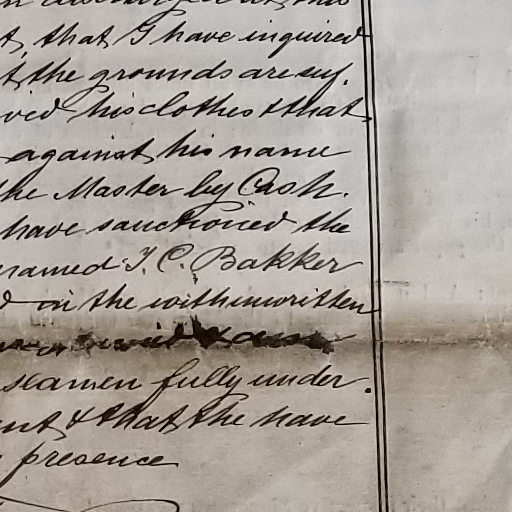 t, that I have inquired
t the grounds are suf.
ved his clothes & that
against his name
the Master by Cash.
have sanctioned the
named J. C. Bakker
d in the within written
seamen fully under.
nt & that the have
presence